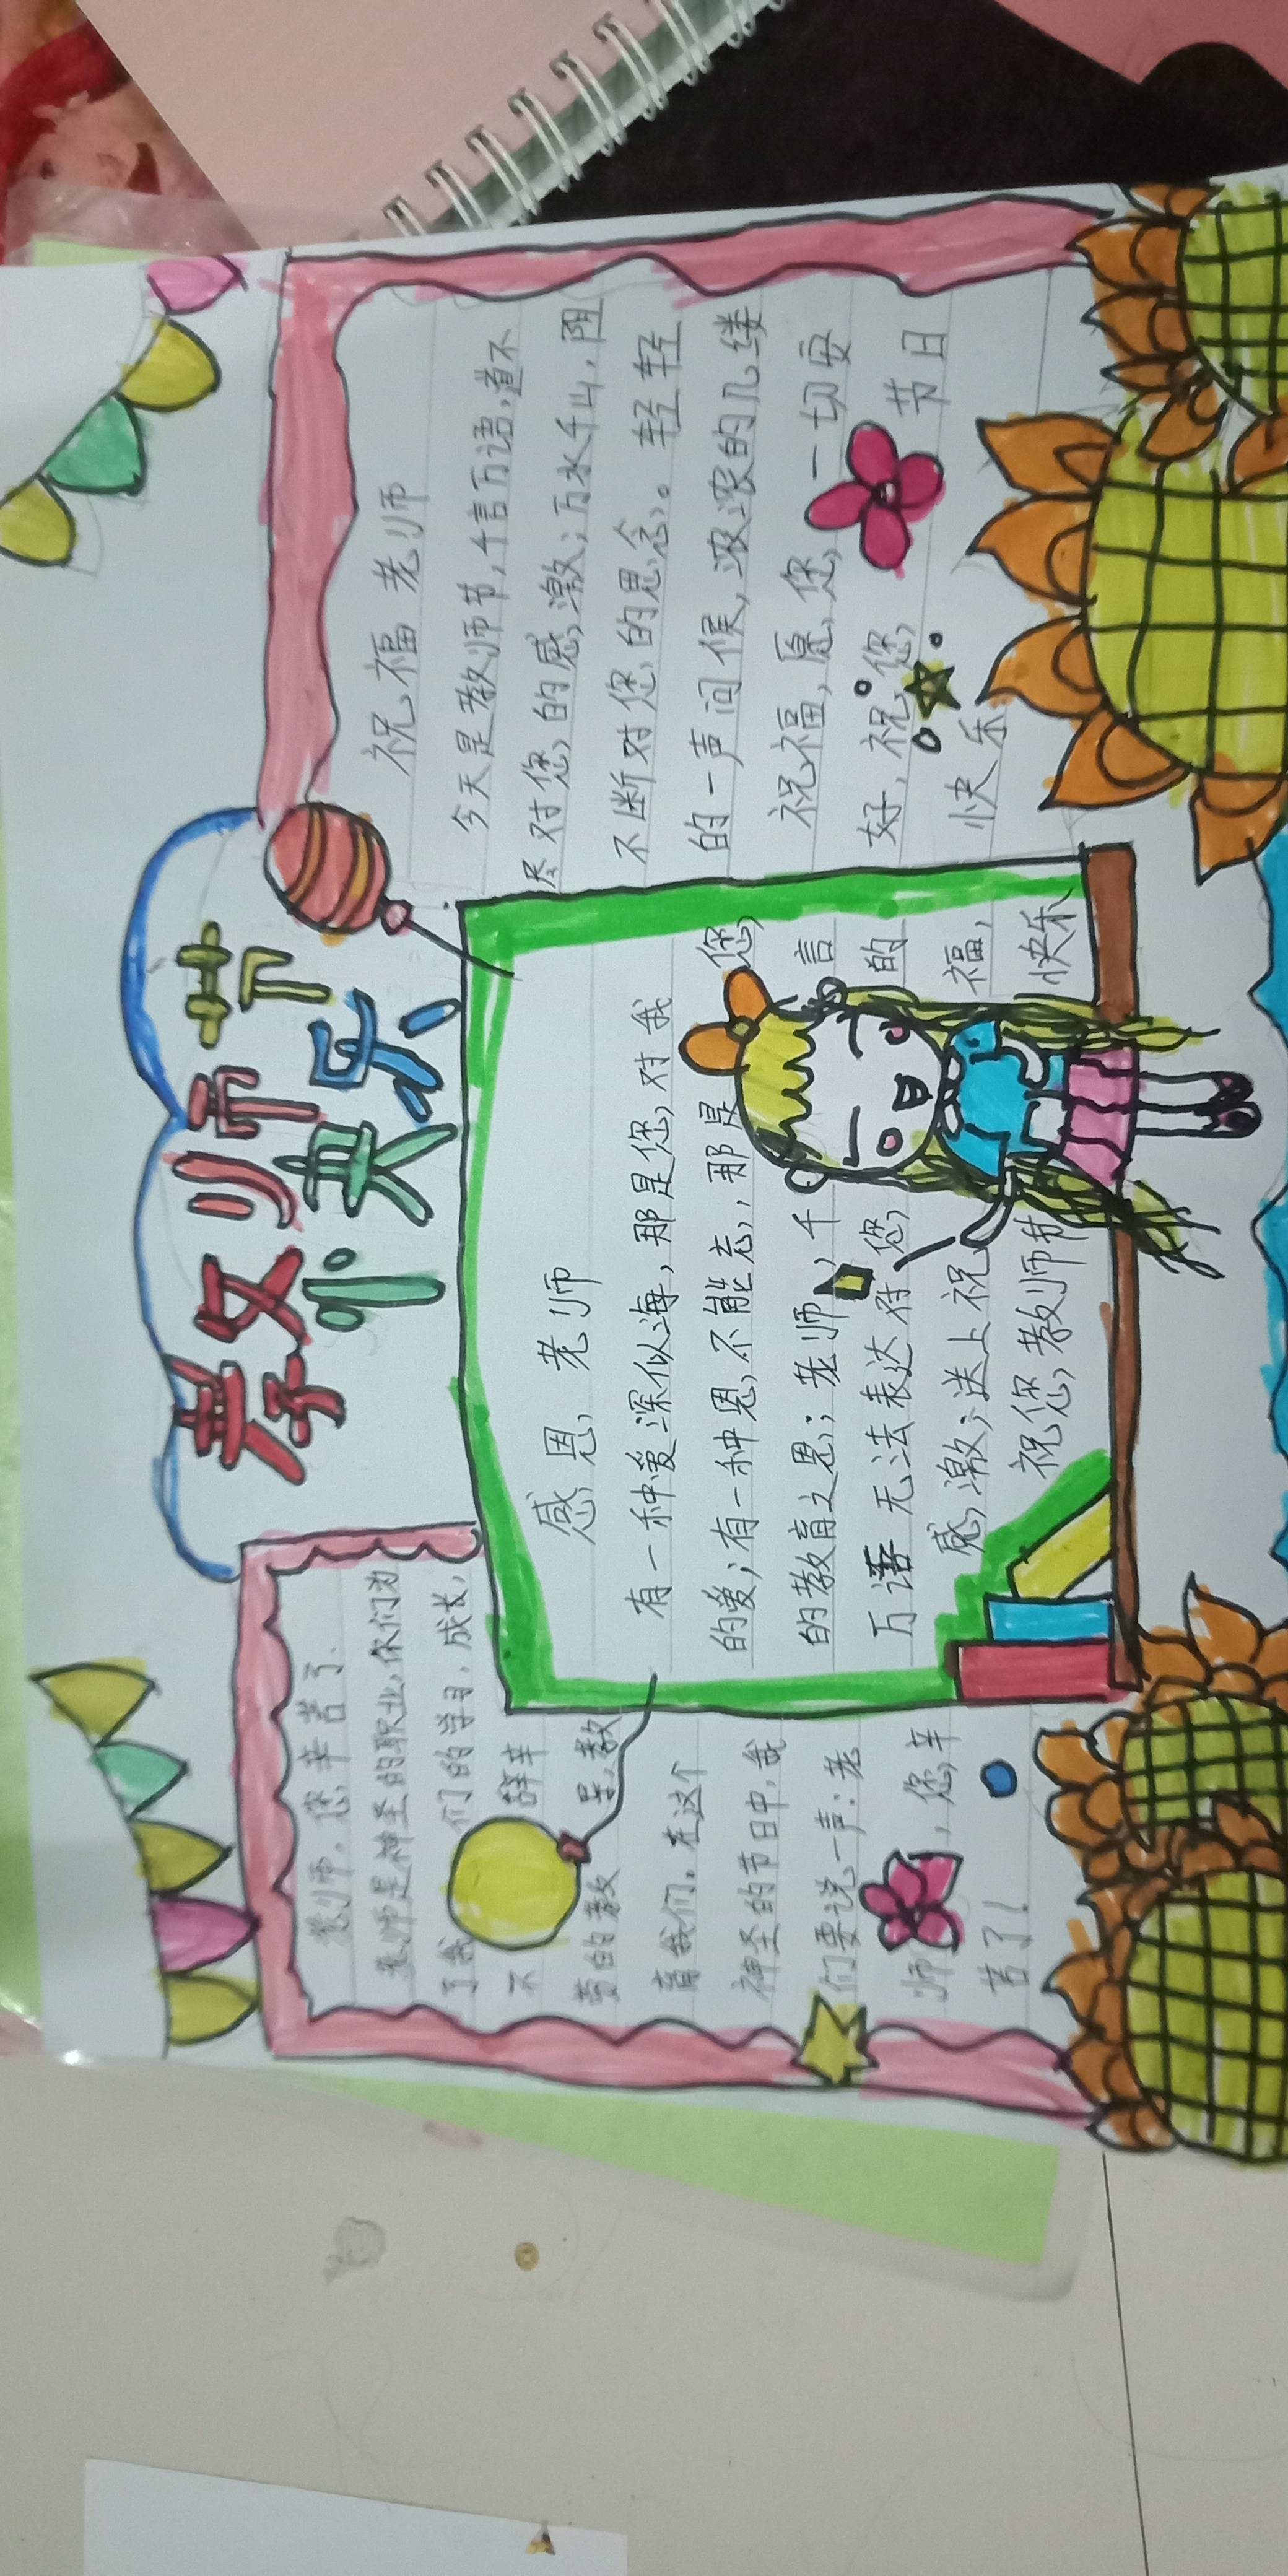 教师节
快乐
老师，您辛苦了
老师是神圣的职业，你们为
了我们的学习，成长，
不辞辛
劳的教导，教
育我们。在这个
神圣的节日中，我
们要说一声：老
师，您辛
苦了！
感恩老师
有一种爱深似海，那是您对我
的爱；有一种恩不能忘，那是您
的教育之恩；老师，千言
万语无法表达对您的
感激；送上祝福，
祝您教师节快乐
祝福老师
今天是教师节，千言万语，道不
尽对您的感激；万水千山，阻
不断对您的思念。轻轻
的一声问候，浓浓的几缕
祝福，愿您一切安
好，祝您节日
快乐